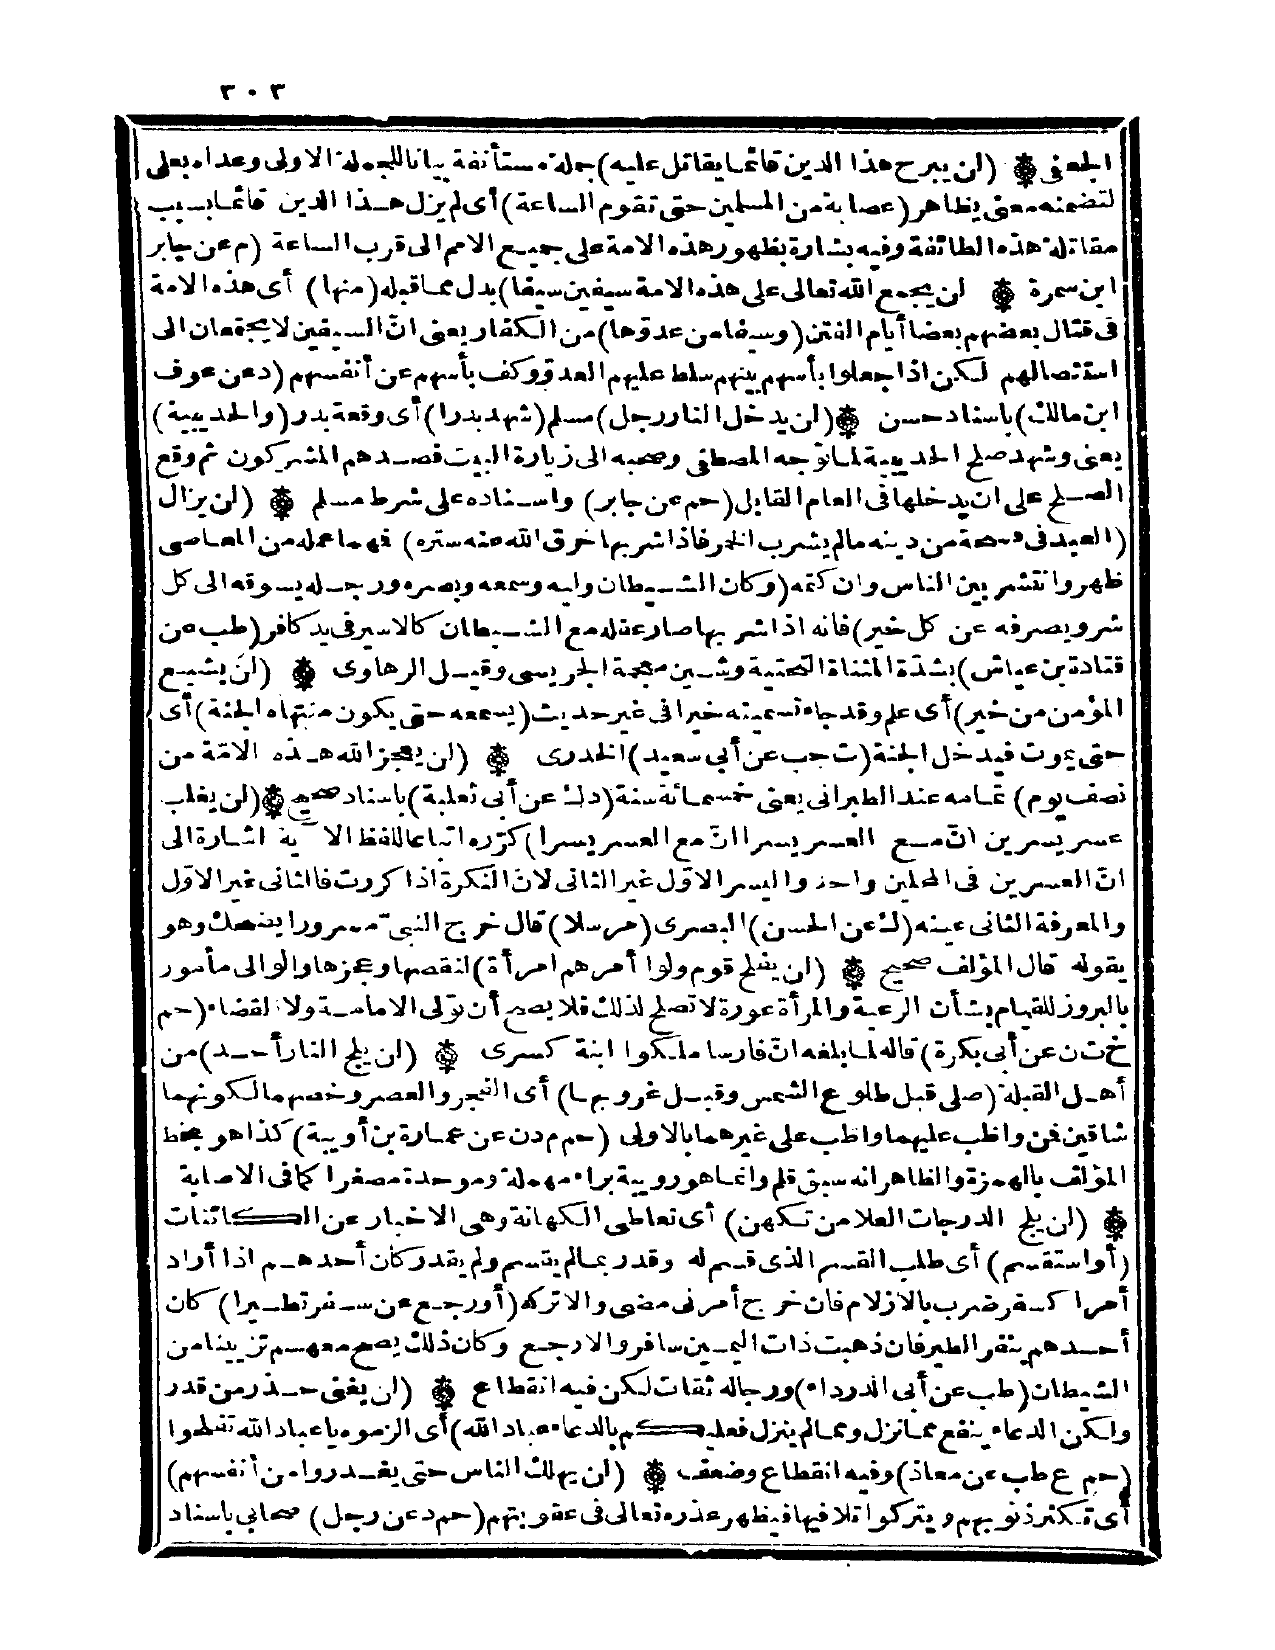 ٣٠٣
الجعفى ۞ (لن يبرح هذا الدين قائما يقاتل عليه) جملة مستأنفة بيانا للجملة الاولى وعداه بعلى
لتضمنه معنى يظاهر (عصابة من المسلمين حتى تقوم الساعة) أى لم يزل هذا الدين قائما بسبب
مقاتلة هذه الطائفة وفيه بشارة بظهور هذه الامة على جميع الامم الى قرب الساعة (م عن جابر
ابن سمرة ۞ لن يجمع الله تعالى على هذه الامة سيفين سيفا) بدل مما قبله (منها) أى هذه الامة
فى قتال بعضهم بعضا أيام الفتن (وسيفا من عدوّها) من الكفار يعنى انّ السيفين لا يجتمعان الى
استئصالهم لكن اذا جعلوا بأسهم بينهم سلط عليهم العدوّ وكف بأسهم عن أنفسهم (د عن عوف
ابن مالك) باسناد حسن ۞ (لن يدخل النار رجل) مسلم (شهد بدرا) أى وقعة بدر (والحديبية)
يعنى وشهد صلح الحديبية لما توجه المصطفى وصحبه الى زيارة البيت فصدهم المشركون ثم وقع
الصلح على ان يدخلها فى العام القابل (حم عن جابر) واسناده على شرط مسلم ۞ (لن يزال
(العبد فى فسحة من دينه مالم يشرب الخمر فاذا شربها خرق الله عنه ستره) فهما عمله من المعاصى
ظهر وانتشر بين الناس وان كتمه (وكان الشيطان وليه وسمعه وبصره ورجله يسوقه الى كل
شر ويصرفه عن كل خير) فانه اذا شربها صار عقله مع الشيطان كالاسير فى يد كافر (طب عن
قتادة بن عياش) بشدّة المثناة التحتية وشين معجمة الجريسى وقيل الرهاوى ۞ (لن يشبع
المؤمن من خير) أى علم وقد جاء تسميته خيرا فى غير حديث (يسمعه حتى يكون منتهاه الجنة) أى
حتى يموت فيدخل الجنة (ت حب عن أبى سعيد) الخدرى ۞ (لن يعجز الله هذه الامّة من
نصف يوم) تمامه عند الطبرانى يعنى خمسمائة سنة (د ك عن أبى ثعلبة) باسناد صحيح ۞ (لن يغلب
عسر يسرين انّ مع العسر يسرا انّ مع العسر يسرا) كرّره اتباعا للفظ الآية اشارة الى
انّ العسرين فى المحلين واحد واليسر الاوّل غير الثانى لانّ النكرة اذا كررت فالثانى غير الاوّل
والمعرفة الثانى عينه (ك عن الحسن) البصرى (مرسلا) قال خرج النبىّ مسرورا يضحك وهو
يقوله قال المؤلف صحيح ۞ (لن يفلح قوم ولوا أمرهم امرأة) لنقصها وعجزها والوالى مأمور
بالبروز للقيام بشأن الرعية والمرأة عورة لا تصلح لذلك فلا يصح أن تولى الامامة ولا القضاء (حم
خ ت ن عن أبى بكرة) قاله لما بلغه انّ فارسا ملكوا ابنة كسرى ۞ (لن يلج النار أحد) من
أهل القبلة (صلى قبل طلوع الشمس وقبل غروبها) أى الفجر والعصر وخصهما لكونهما
شاقين فمن واظب عليهما واظب على غيرهما بالاولى (حم م د ن عن عمارة بن أويبة) كذا هو بخط
المؤلف بالهمزة والظاهر انه سبق قلم وانما هو رويبة براء مهملة وموحدة مصغرا كما فى الاصابة
۞ (لن يلج الدرجات العلا من تكهن) أى تعاطى الكهانة وهى الاخبار عن الكائنات
(أو استقسم) أى طلب القسم الذى قسم له وقدر بمالم يقسم ولم يقدر كان أحدهم اذا أراد
أمرا كسفر ضرب بالازلام فان خرج أمرنى مضى والا تركه (أو رجع من سفر تطيرا) كان
أحدهم ينفر الطير فان ذهبت ذات اليمين سافر والا رجع وكان ذلك يصح معهم تزيينا من
الشيطان (طب عن أبى الدرداء) ورجاله ثقات لكن فيه انقطاع ۞ (لن يغنى حذر من قدر
ولكن الدعاء ينفع مما نزل ومما لم ينزل فعليكم بالدعاء عباد الله) أى الزموه يا عباد الله تفلحوا
(حم ع طب عن معاذ) وفيه انقطاع وضعف ۞ (لن يهلك الناس حتى يغدروا من أنفسهم)
أى تكثر ذنوبهم ويتركوا تلافيها فيظهر عذره تعالى فى عقوبتهم (حم د عن رجل) صحابى باسناد